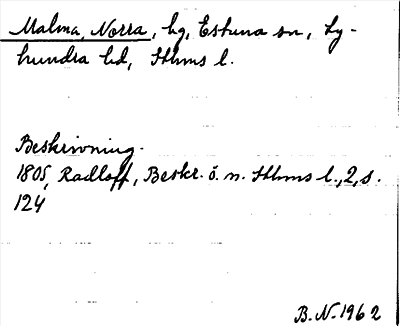 Malma, Norra, hg, Estuna sn, Ly-
hundra hd, Sthlms l.
Beskrivning.
1805, Radloff, Beskr. ö. n. Sthlms l., 2, s.
124
B. N. 1962